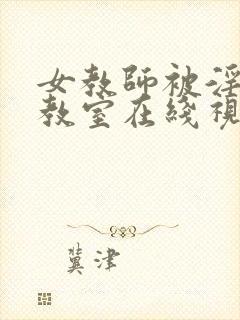 女教師被淫
教室在綫視
冀津